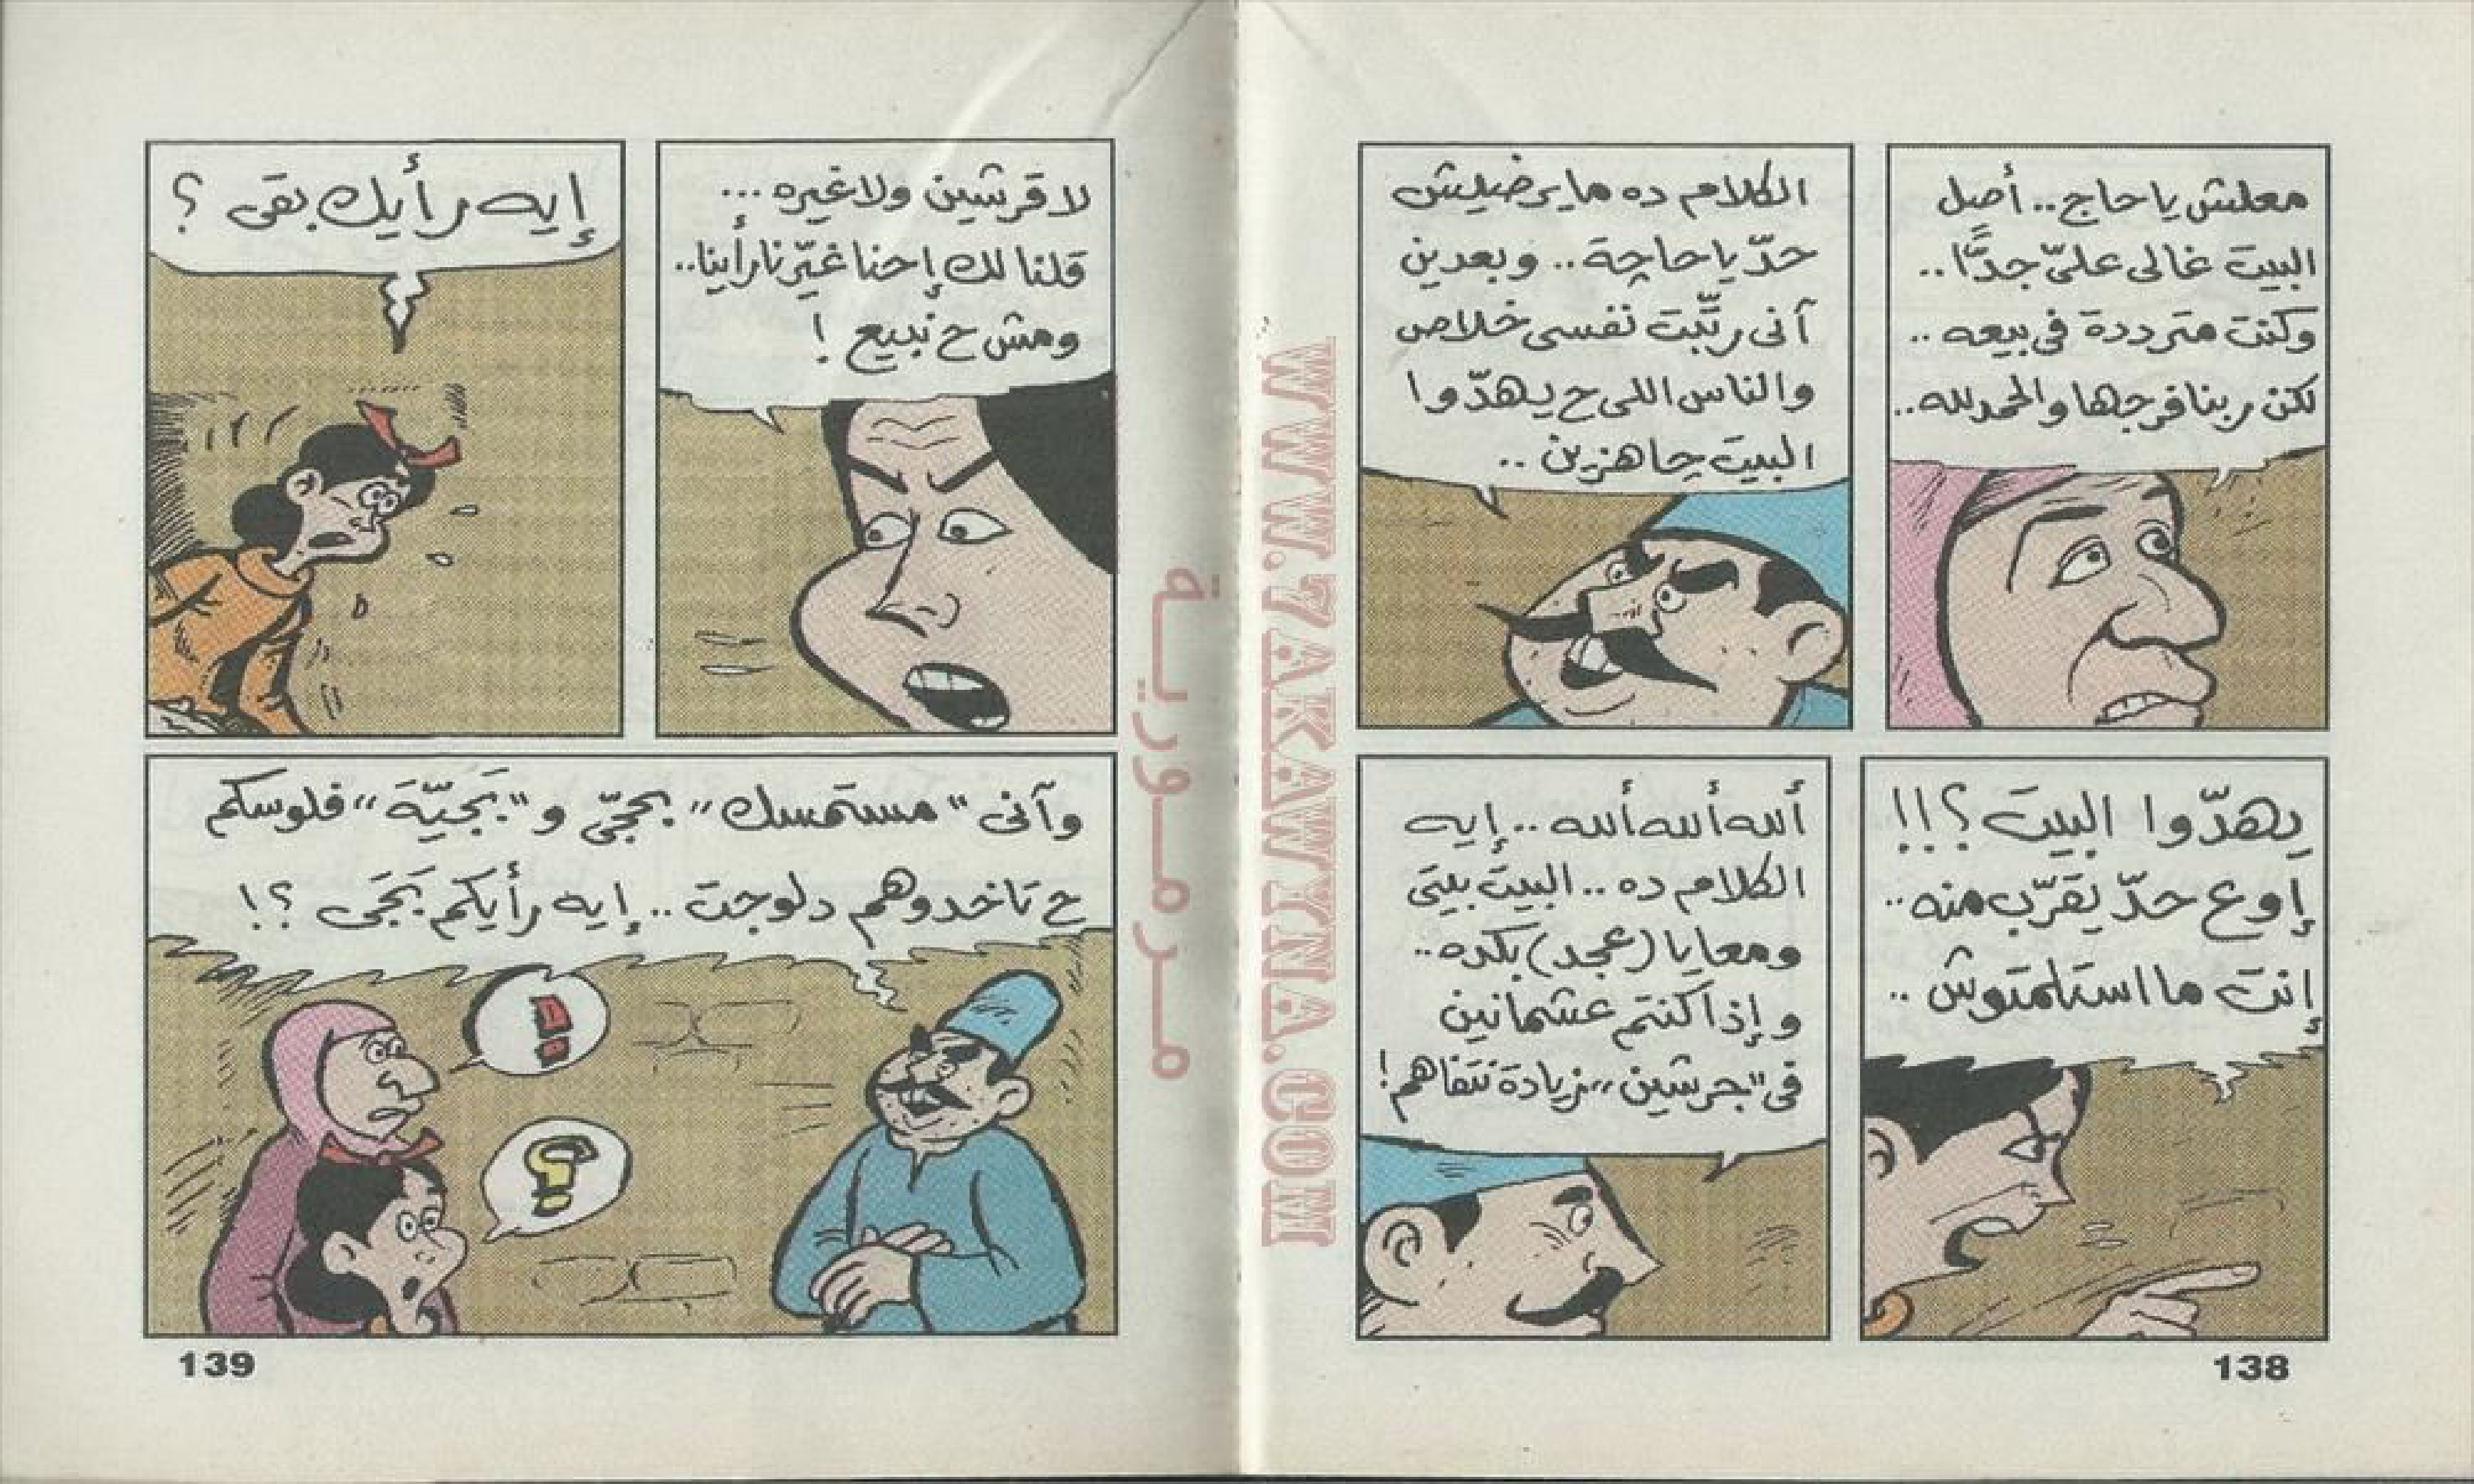 معلش ياحاج.. أصل
البيت غالى علىّ جدًّا..
وكنت مترددة فى بيعه..
لكن ربنا فرجها والحمد لله..
الكلام ده مايرضيش
حدّ ياحاجة.. وبعدين
آنى رتّبت نفسى خلاص
والناس اللى ح يهدّوا
البيت جاهزين..
يهدّوا البيت؟!!
إوع حدّ يقرّب منه..
إنت ما استلمتوش..
ألله ألله ألله.. إيه
الكلام ده.. البيت بيتى
ومعايا (عجد) بكده..
وإذا كنتم عشمانين
فى "جرشين" زيادة نتفاهم!
لا قرشين ولا غيره...
قلنا لك إحنا غيّرنا رأينا..
ومش ح نبيع!
إيه رأيك بقى؟
وآنى "مستمسك" بحجّى و"بَجيّة" فلوسكم
ح تاخدوهم دلوجت.. إيه رأيكم بَجَى؟!
!
؟
138
139
WWW.7AKAWYNA.COM
مرمورية